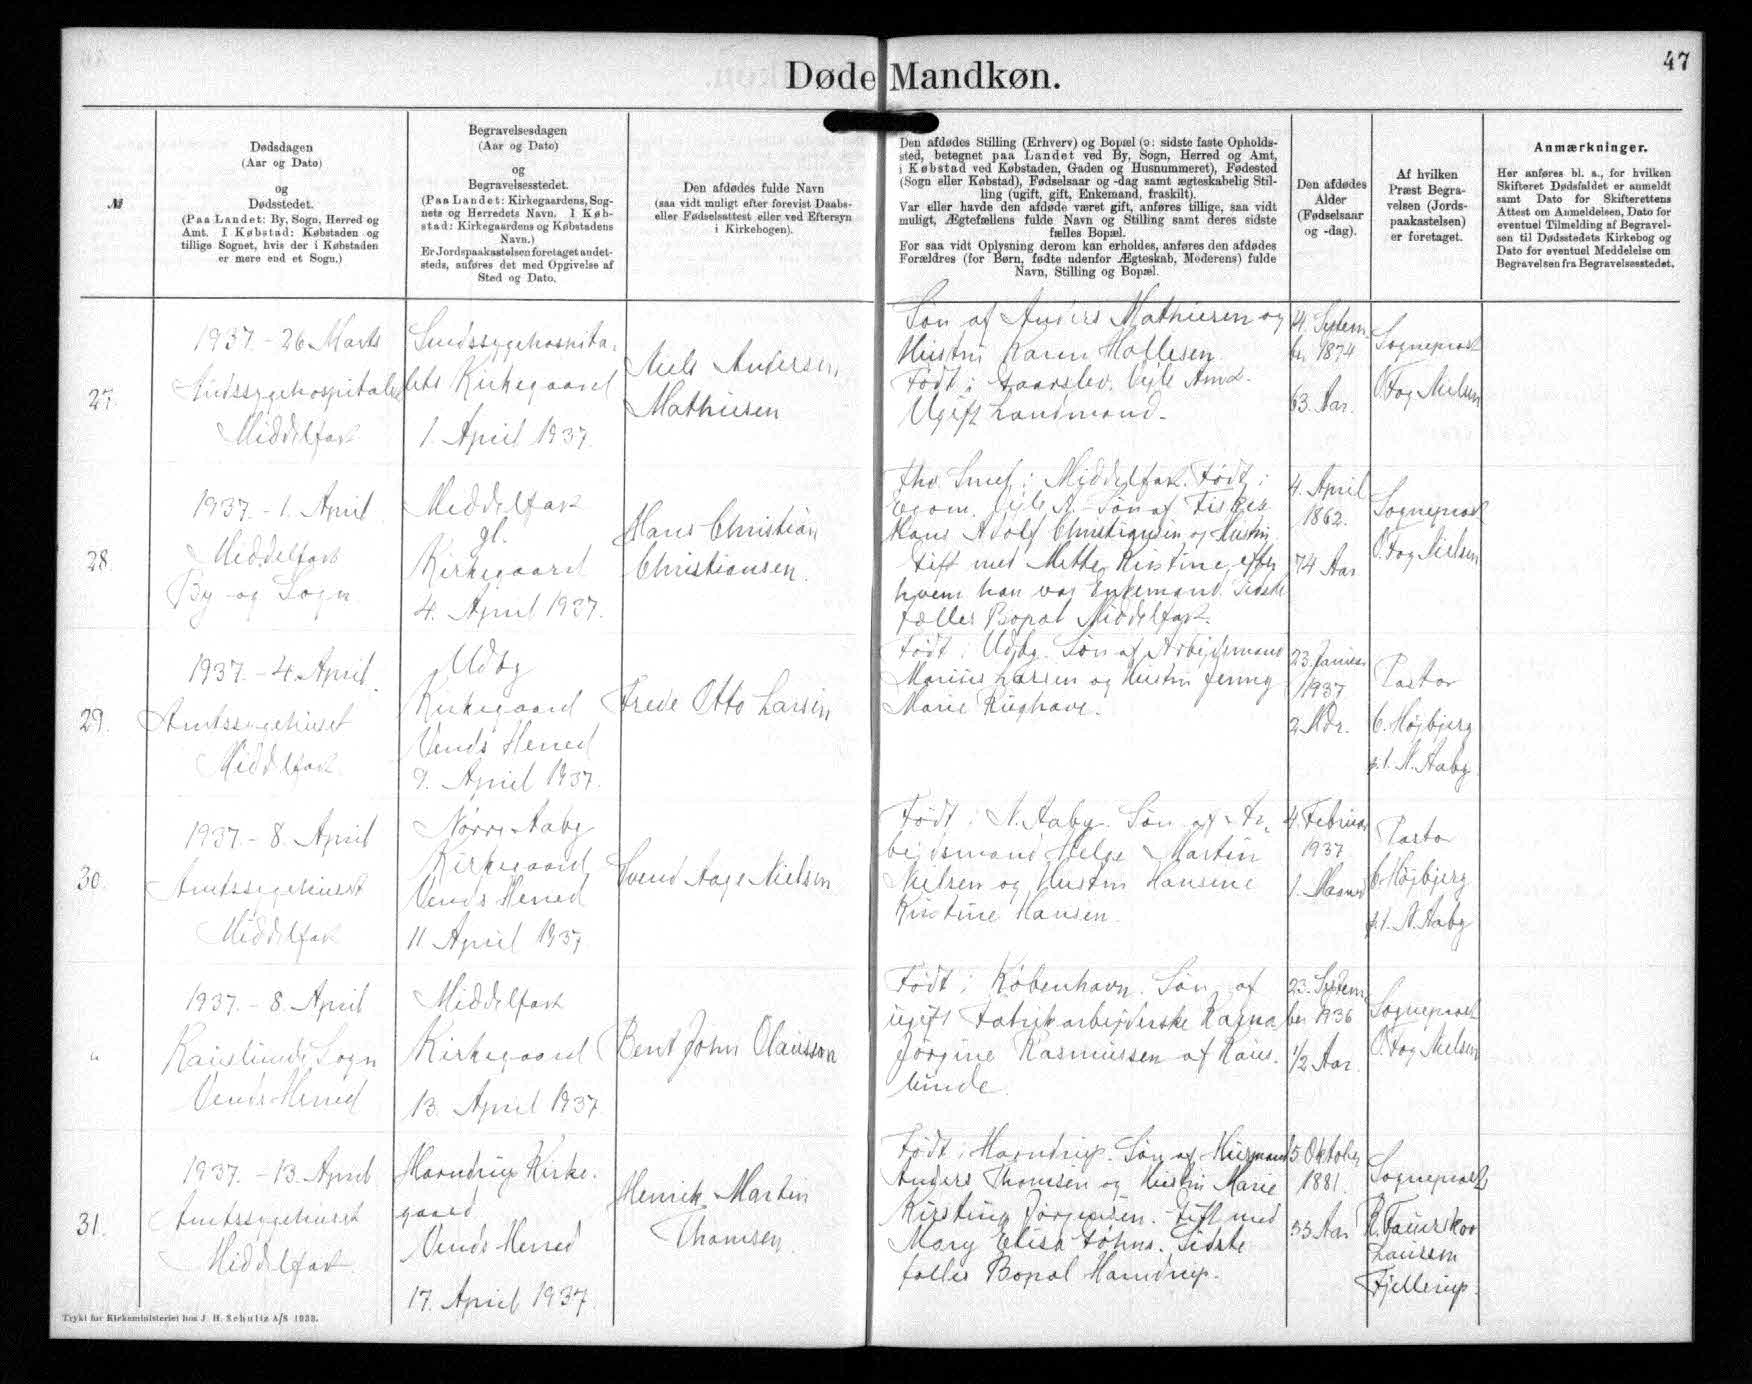 47
Døde Mandkøn.
№
Dødsdagen
(Aar og Dato)
og
Dødsstedet.
(Paa Landet: By, Sogn, Herred og
Amt. I Købstad: Købstaden og
tillige Sognet, hvis der i Købstaden
er mere end et Sogn.)
Begravelsesdagen
(Aar og Dato)
og
Begravelsesstedet.
(Paa Landet: Kirkegaardens, Sog-
nets og Herredets Navn. I Køb-
stad: Kirkegaardens og Købstadens
Navn.)
Er Jordspaakastelsen foretaget andet-
steds, anføres det med Opgivelse af
Sted og Dato.
Den afdødes fulde Navn
(saa vidt muligt efter forevist Daabs-
eller Fødselsattest eller ved Eftersyn
i Kirkebogen).
Den afdødes Stilling (Erhverv) og Bopæl (ɔ: sidste faste Opholds-
sted, betegnet paa Landet ved By, Sogn, Herred og Amt,
i Købstad ved Købstaden, Gaden og Husnummeret), Fødested
(Sogn eller Købstad), Fødselsaar og -dag samt ægteskabelig Stil-
ling (ugift, gift, Enkemand, fraskilt).
Var eller havde den afdøde været gift, anføres tillige, saa vidt
muligt, Ægtefællens fulde Navn og Stilling samt deres sidste
fælles Bopæl.
For saa vidt Oplysning derom kan erholdes, anføres den afdødes
Forældres (for Børn, fødte udenfor Ægteskab, Moderens) fulde
Navn, Stilling og Bopæl.
Den afdødes
Alder
(Fødselsaar
og -dag).
Af hvilken
Præst Begra-
velsen (Jords-
paakastelsen)
er foretaget.
Anmærkninger.
Her anføres bl. a., for hvilken
Skifteret Dødsfaldet er anmeldt
samt Dato for Skifterettens
Attest om Anmeldelsen, Dato for
eventuel Tilmelding af Begravel-
sen til Dødsstedets Kirkebog og
Dato for eventuel Meddelelse om
Begravelsen fra Begravelsesstedet.
27.
1937. - 26 Marts
Sindssygehospitalet
Middelfart
Sindssygehospita-
lets Kirkegaard
1. April 1937.
Niels Andersen
Mathiesen
Søn af Anders Mathiesen og
Hustru Karen Hallesen.
Født i Gaarslev. Vejle Amt.
Ugift Landmand.
4. Septem-
ber 1874
63. Aar.
Sogneprost
O. Fog Nielsen
28.
1937. - 1. April
Middelfart
By- og Sogn
Middelfart
gl.
Kirkegaard
4. April 1937.
Hans Christian
Christiansen.
fhv. Smed i Middelfart. Født i
Egum. Vejle A. Søn af Fisker
Hans Adolf Christiansen og Hustru.
Gift med Mette Kirstine, efter
hvem han var Enkemand. Sidste
fælles Bopæl Middelfart.
4. April
1862.
74 Aar
Sogneprost
O. Fog Nielsen
29.
1937. - 4. April.
Amtssygehuset
Middelfart.
Udby
Kirkegaard
Vends Herred
9. April 1937.
Frede Otto Larsen
Født i Udby. Søn af Arbejdsmand
Marius Larsen og Hustru Jenny
Marie Riughave.
23. Januar
1937
2 Mdr.
Pastor
C. Højbjerg
p.t. N. Aaby.
30.
1937. - 8. April
Amtssygehuset
Middelfart
Nørre Aaby
Kirkegaard
Vends Herred
11 April 1937.
Svend Aage Nielsen
Født i N. Aaby. Søn af Ar-
bejdsmand Helge Martin
Nielsen og Hustru Hansine
Kirstine Hansen.
4. Februar
1937
1. Maaned
Pastor
C. Højbjerg
p.t. N. Aaby
"
1937. - 8. April
Kauslunde Sogn
Vends Herred
Middelfart
Kirkegaard
13. April 1937.
Bent John Olausson
Født i København. Søn af
ugift Fabrikarbejderske Ragna
Jørgine Rasmussen af Kaus-
lunde.
23. Septem-
ber 1936
1/2 Aar.
Sogneprost
O. Fog Nielsen
31.
1937. - 13. April
Amtssygehuset
Middelfart.
Harndrup Kirke-
gaard
Vends Herred
17. April 1937.
Henrik Martin
Thomsen.
Født i Harndrup. Søn af Husmand
Anders Thomsen og Hustru Marie
Kirstine Jørgensen. Gift med
Mary Elisa Føhns. Sidste
fælles Bopæl Harndrup.
5. Oktober
1881.
55 Aar
Sogneprost
R. Faurskov
Laursen
Fjellerup.
Trykt for Kirkeministeriet hos J. H. Schultz A/S 1933.